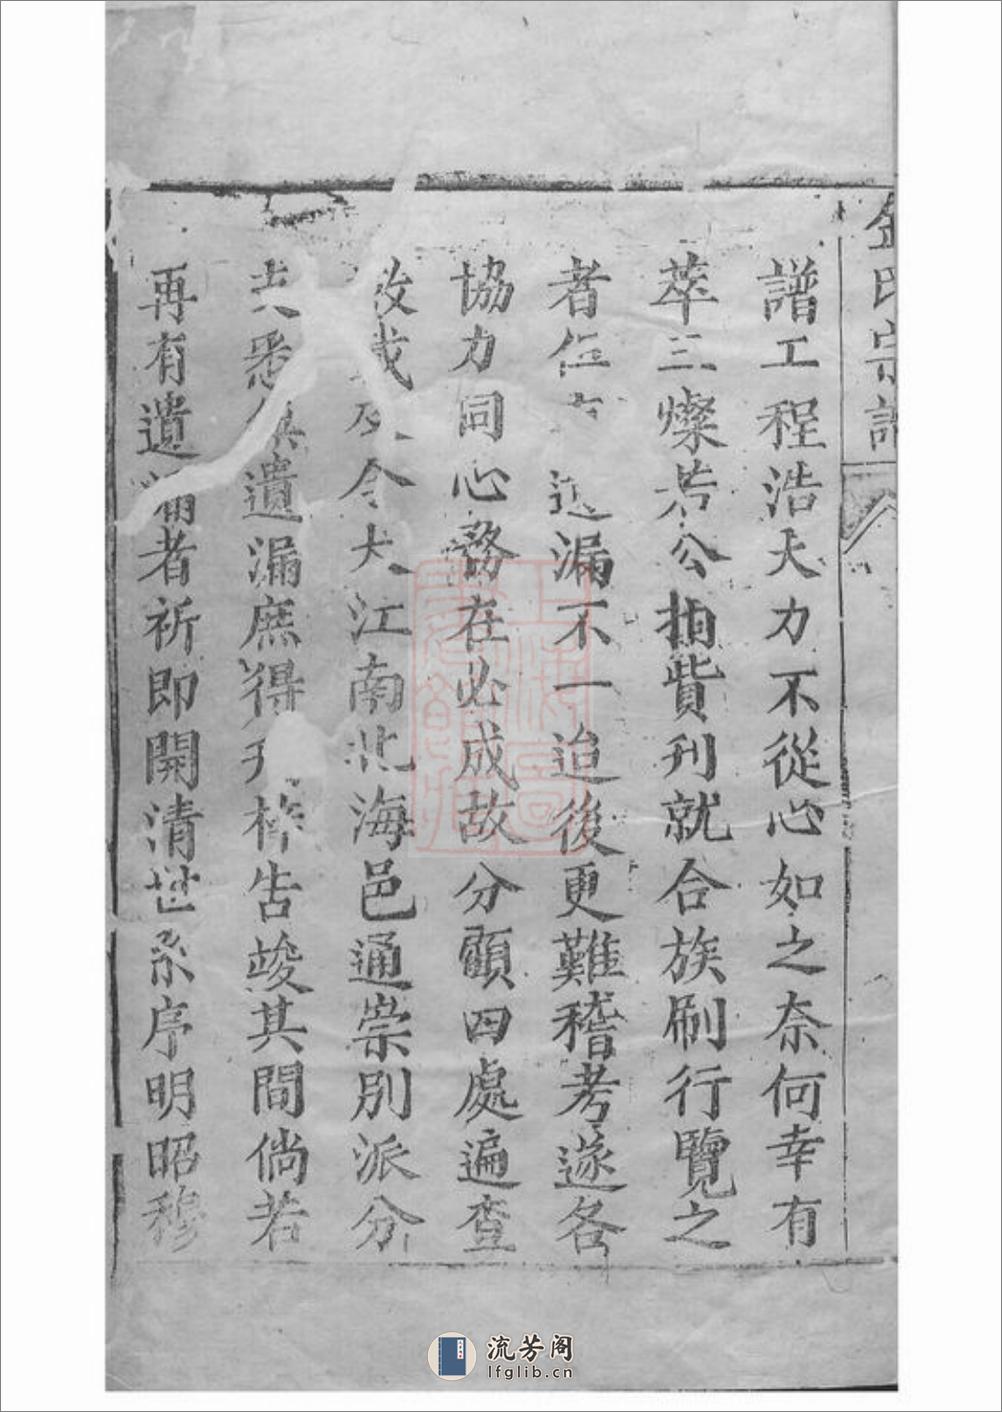 氏宗
譜工程浩大力不從心如之奈何幸有
萃三燦若公捐貲刊就合族刷行覽之
者漏不一迨後更難稽考遂各
協力同心務在必成故分顧四處遍查
載今大江南北海邑通崇別派分
悉俱遺漏庶得梓告竣其間倘若
再有遺漏者祈即開清世系序明昭穆
上海圖書館藏
流芳阁
lfglib.cn